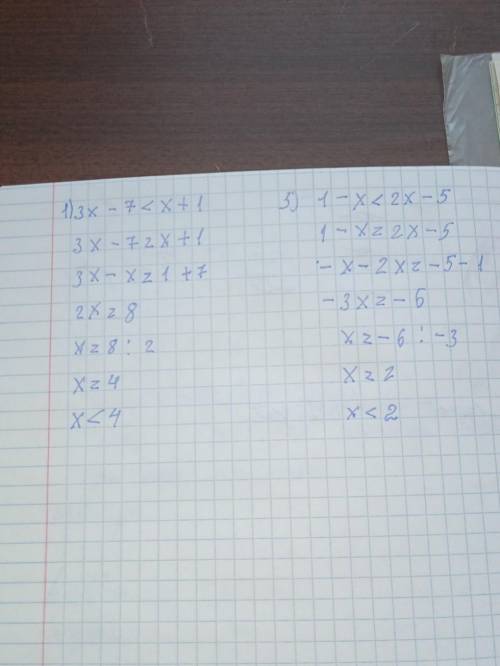 1) 3x - 7 < x + 1
3x - 7 = x + 1
3x - x = 1 + 7
2x = 8
x = 8 : 2
x = 4
x < 4
5) 1 - x < 2x - 5
1 - x = 2x - 5
- x - 2x = - 5 - 1
- 3x = - 6
x = - 6 : - 3
x = 2
x < 2